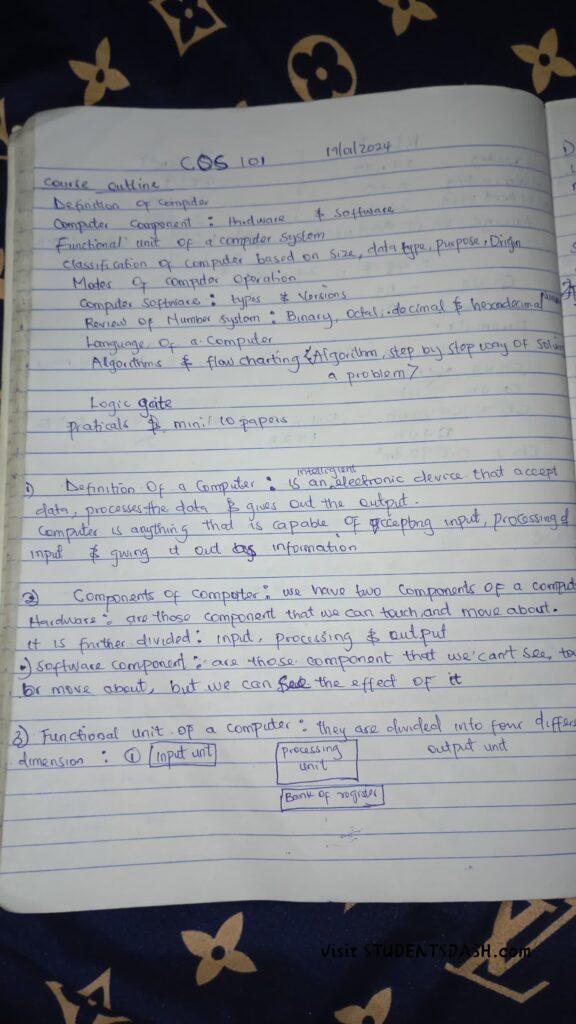 COS 101 19/01/2024
Course outline
Definition of computer
Computer Component : Hardware & Software
Functional unit of a computer system
Classification of computer based on size, data type, purpose,
Modes of computer operation
Computer Software : types & Versions
Review of Number System : Binary, octal, decimal & hexadecimal
Language of a Computer
Algorithms & flow charting {Algorithm, step by step way of
a problem}
Logic gate
praticals & mini 10 papers
1) Definition of a Computer : is an intelligent electronic device that accept
data, processes the data & gives out the output.
Computer is anything that is capable of accepting input, processing
input & giving it out as information
2) Components of computer : we have two components of a
Hardware : are those component that we can touch and move about.
it is further divided : input, processing & output
•) Software component : are those component that we can't see,
or move about, but we can see the effect of it
3) Functional unit of a computer : they are divided into four
dimension : ① input unit processing unit output unit
Bank of register
Visit STUDENTSDASH.com